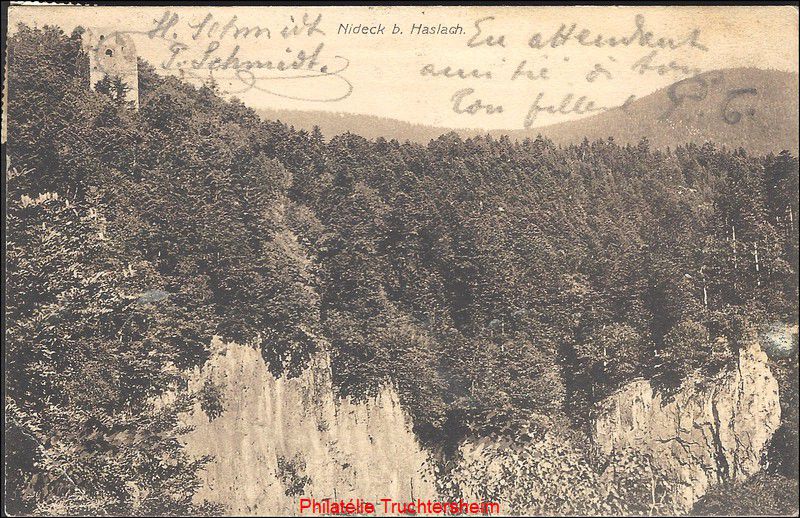 H. Schmidt
T. Schmidt.
Nideck b. Haslach.
En attendant
ton filleul
P. C.
Philatélie Truchtersheim